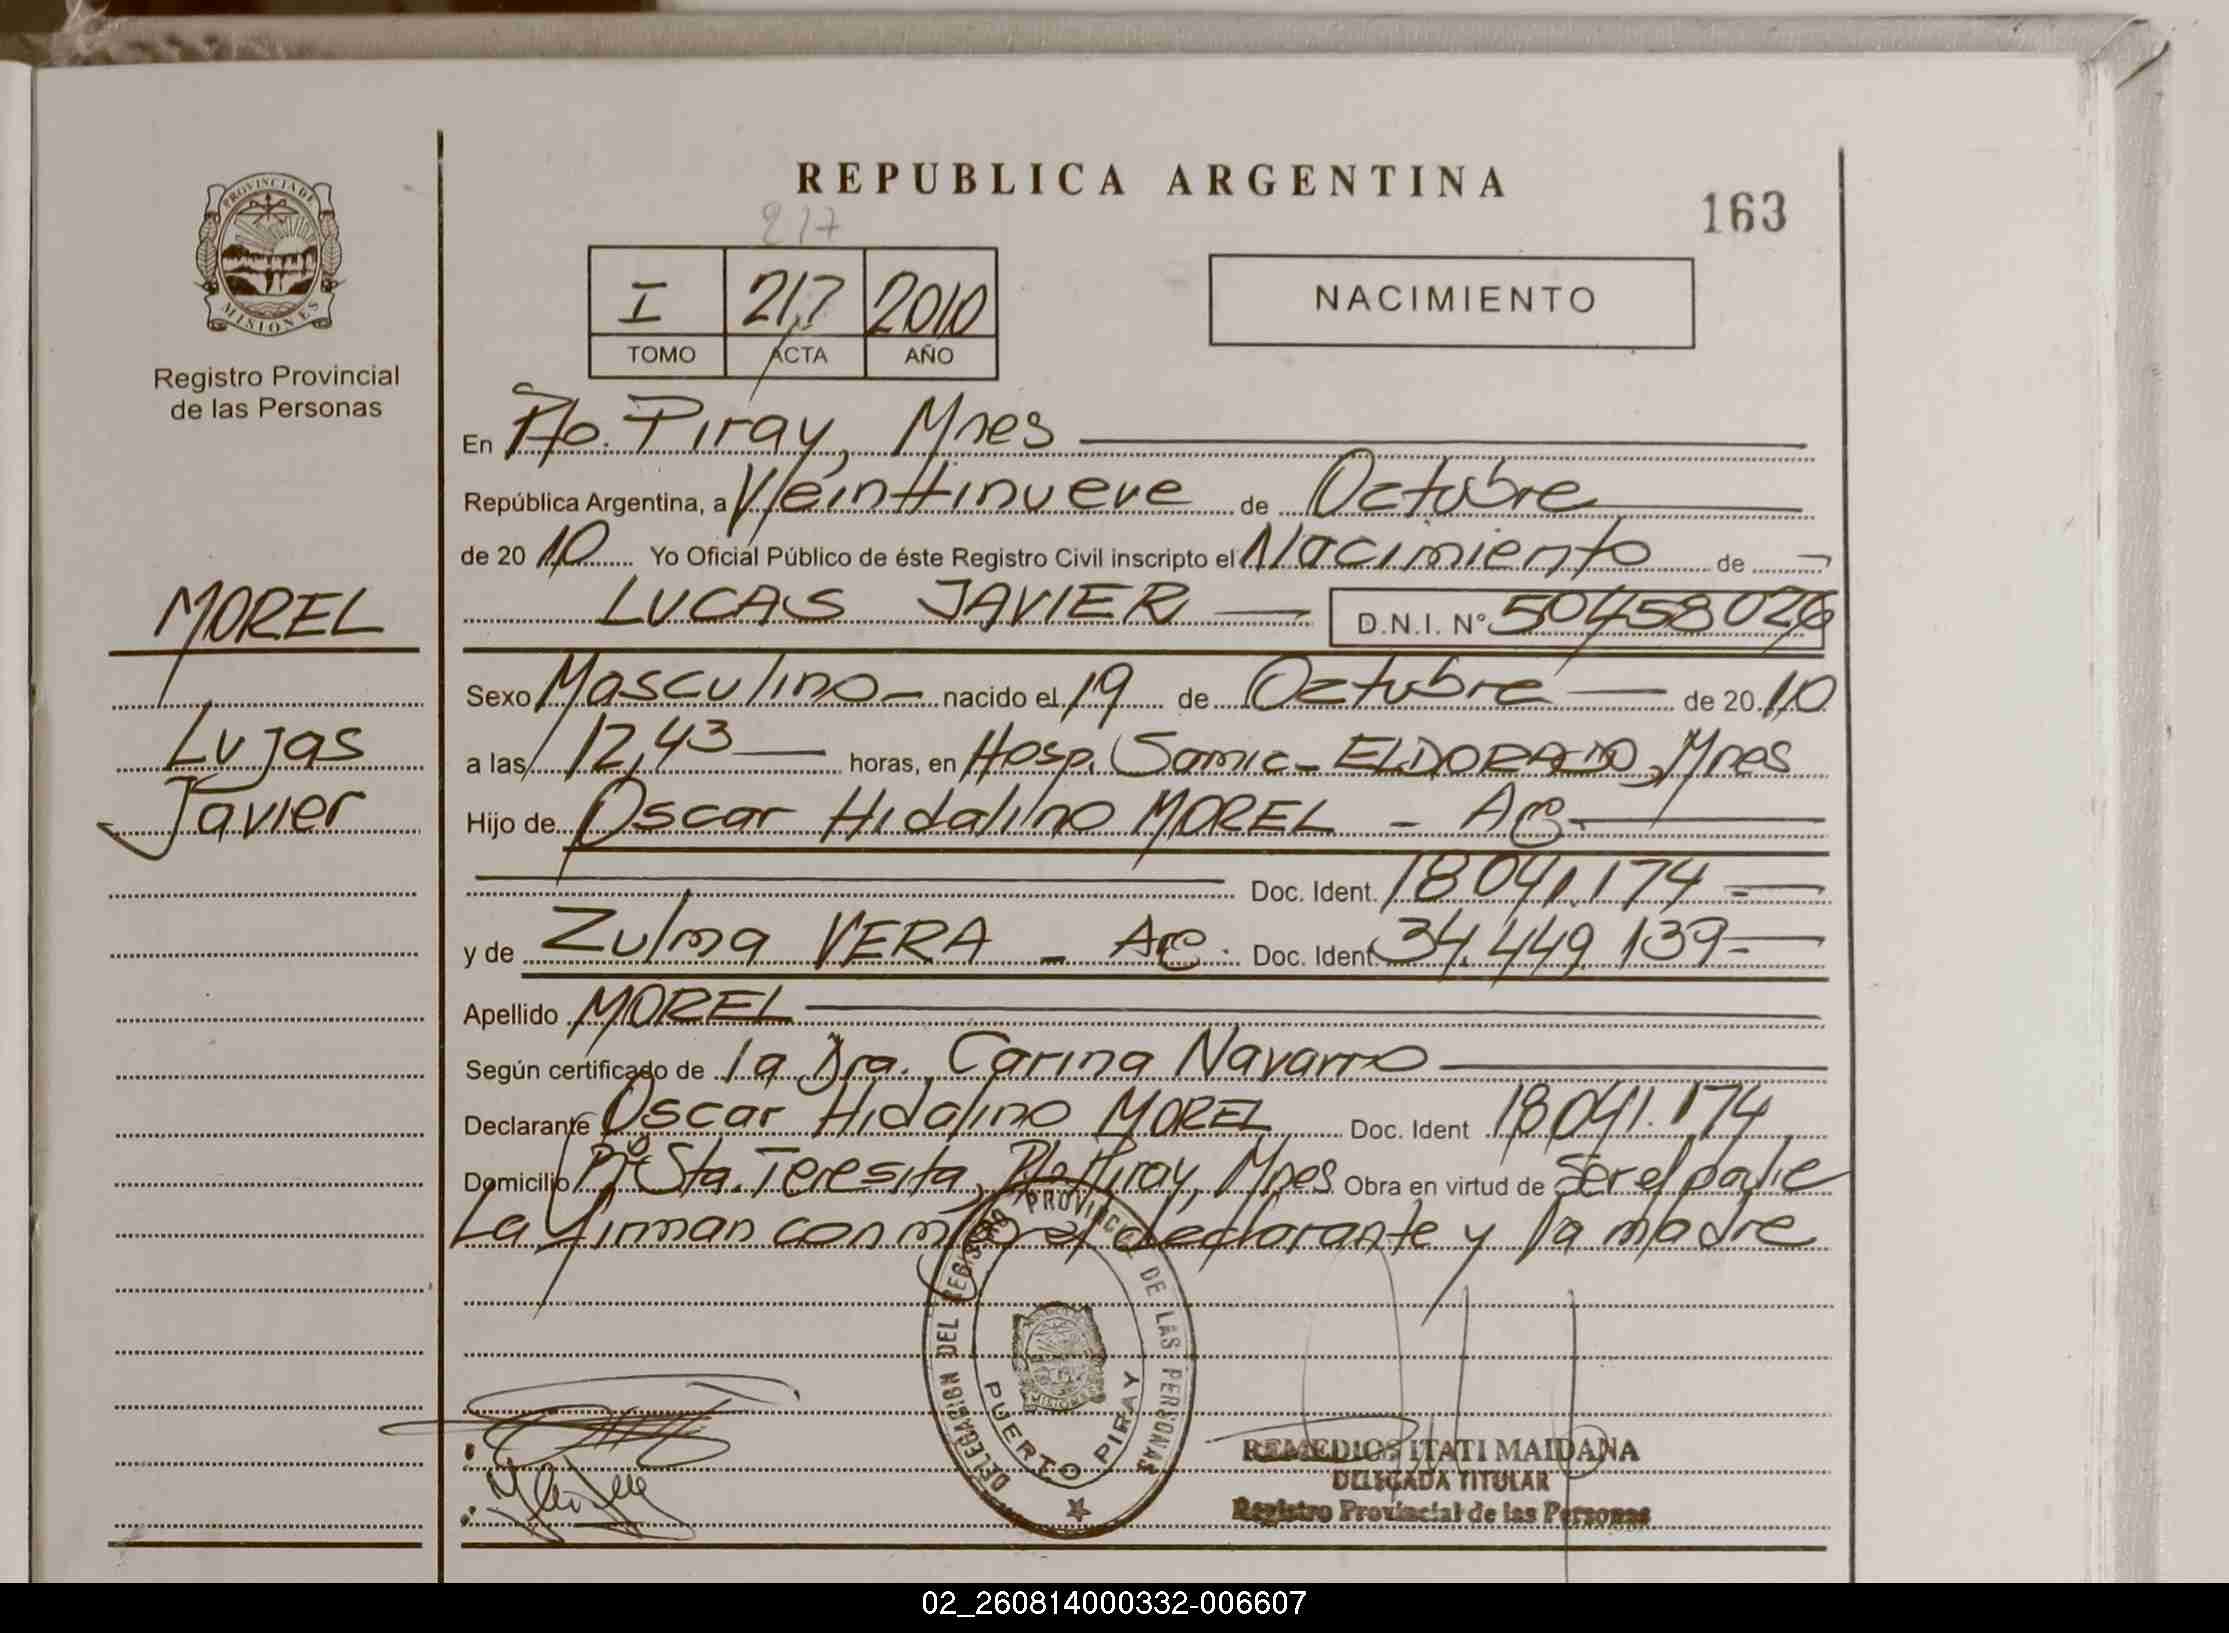 REPUBLICA ARGENTINA
163
217
PROVINCIA DE
MISIONES
Registro Provincial
de las Personas
I 217 2010
TOMO ACTA AÑO
NACIMIENTO
En Pto. Piray, Mnes
República Argentina, a Veinttinueve de Octubre
de 2010 Yo Oficial Público de éste Registro Civil inscripto el Nacimiento de
LUCAS JAVIER D.N.I. N° 50458026
MOREL
Lujas
Javier
Sexo Masculino nacido el 19 de Octubre de 2010
a las 12,43 horas, en Hosp. Samic - ELDORADO, Mnes
Hijo de Oscar Hidalino MOREL - Arg.
Doc. Ident. 18.041.174
y de Zulma VERA - Arg. Doc. Ident 34.449.139
Apellido MOREL
Según certificado de la Dra. Carina Navarro
Declarante Oscar Hidalino MOREL Doc. Ident 18.041.174
Domicilio B° Sta. Teresita, Pto Piray, Mnes Obra en virtud de Ser el padre
La firman conmigo el declarante y la madre
DELEGACION DEL REGISTRO PROVINCIAL DE LAS PERSONAS
PUERTO PIRAY
MISIONES
REMEDIOS ITATI MAIDANA
DELEGADA TITULAR
Registro Provincial de las Personas
02_260814000332-006607